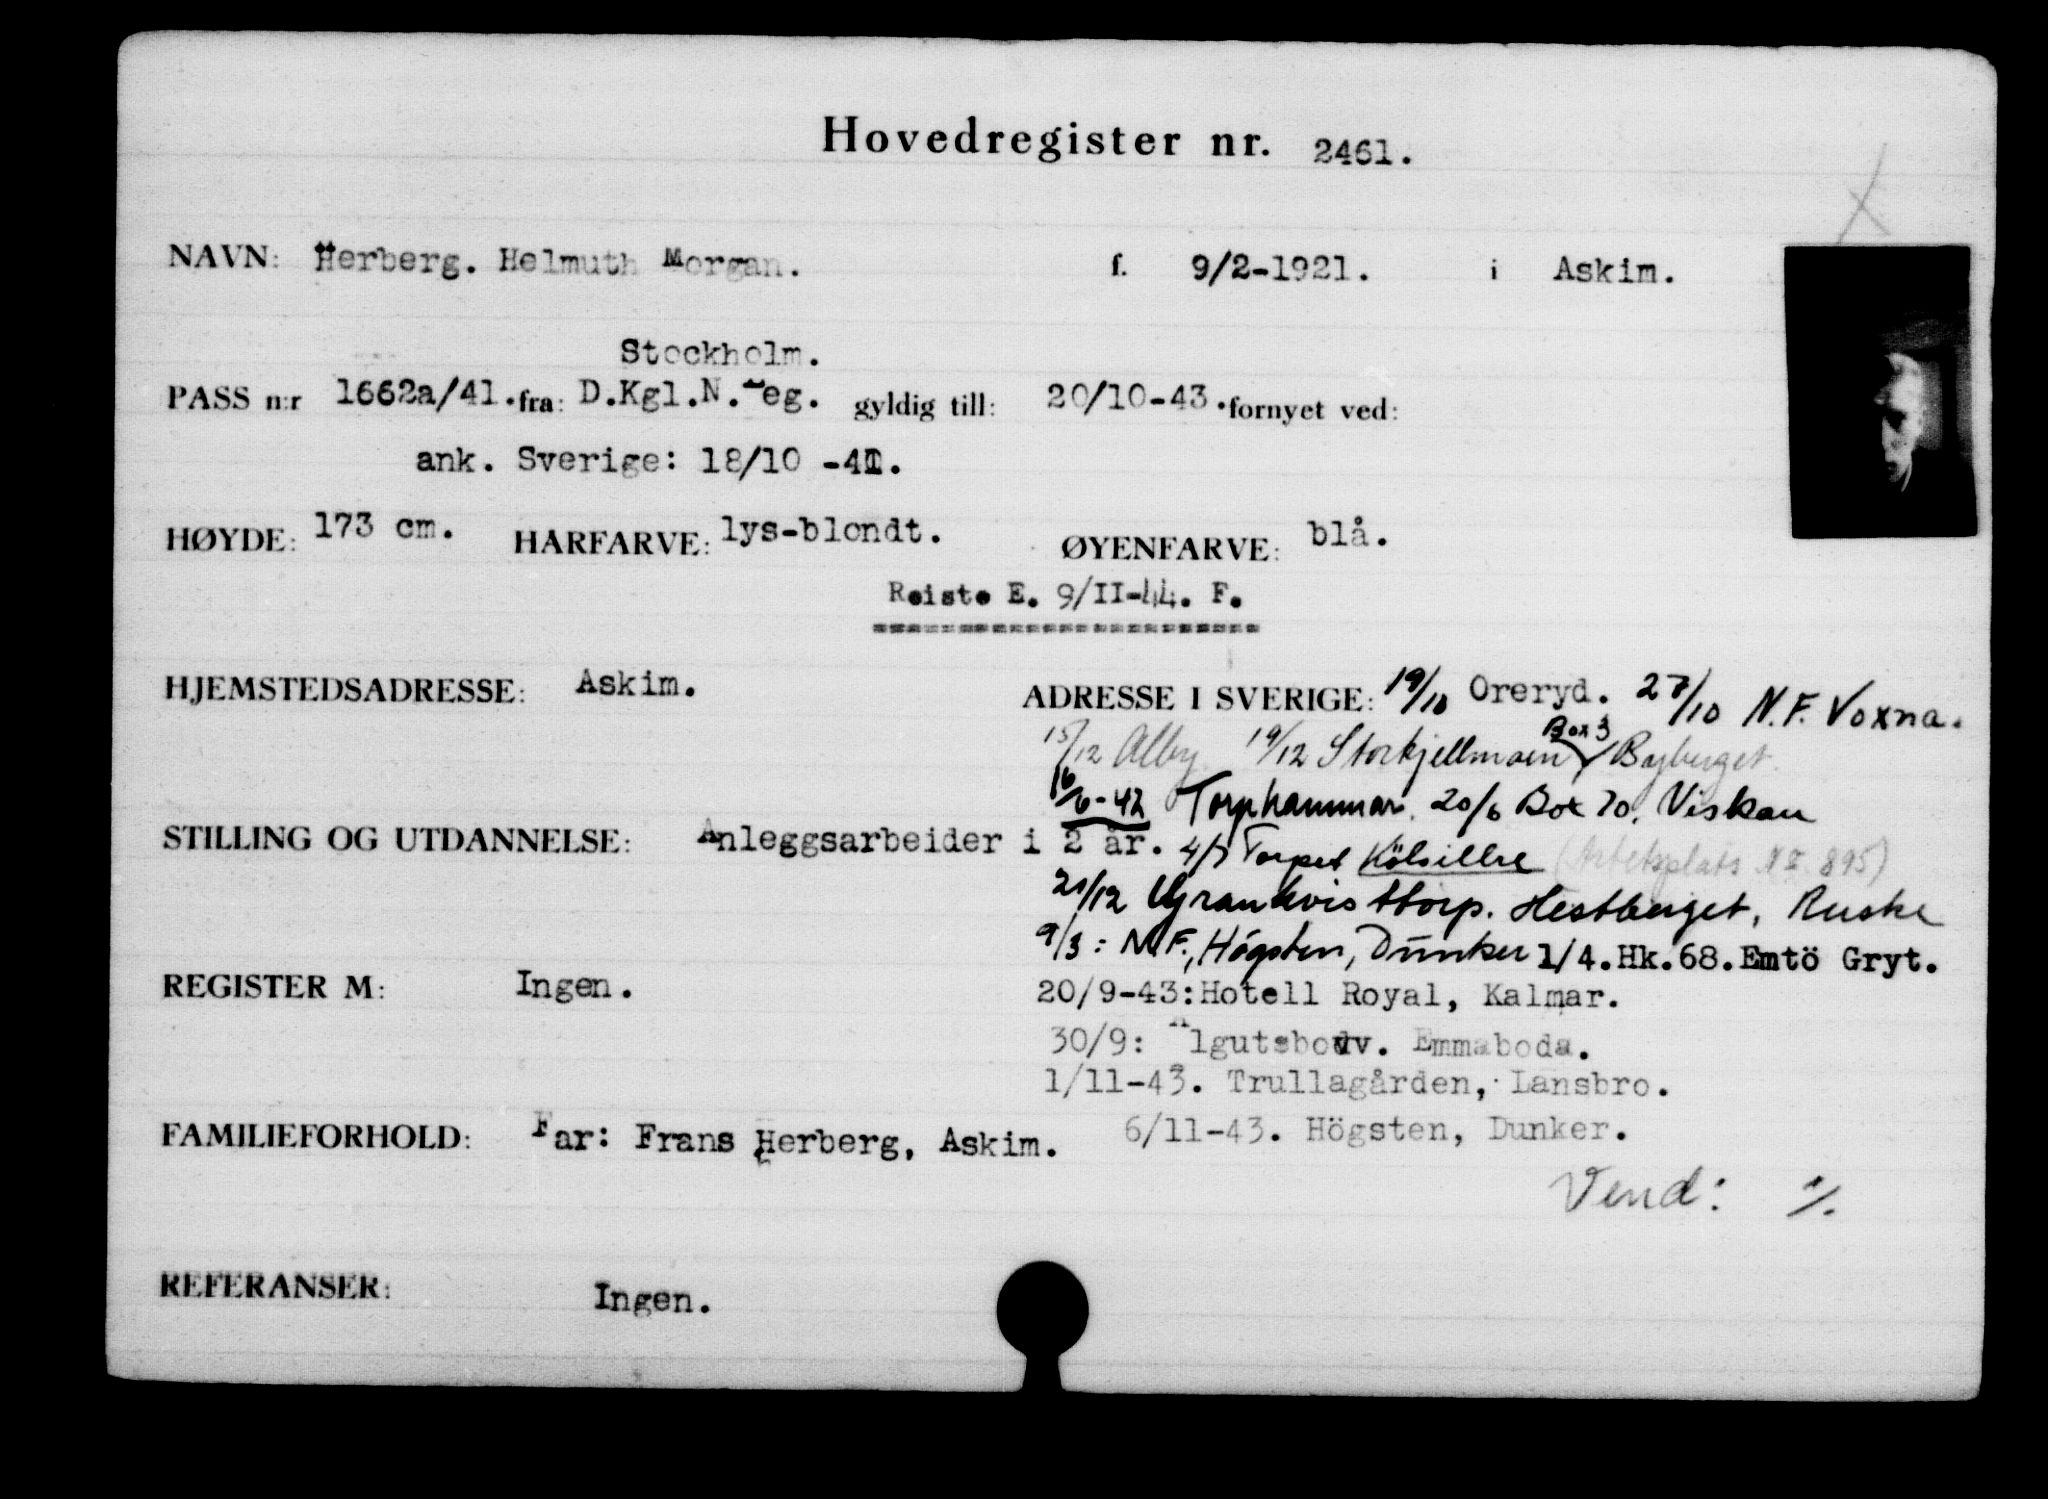 Hovedregister nr. 2461.
NAVN: Herberg. Helmuth Morgan. f. 9/2-1921. i Askim.
Stockholm.
PASS n:r 1662a/41. fra: D.Kgl.N.Leg. gyldig till: 20/10-43. fornyet ved:
ank. Sverige: 18/10 -41.
HØYDE: 173 cm. HARFARVE: lys-blondt. ØYENFARVE: blå.
Reiste E. 9/II-44. F.
HJEMSTEDSADRESSE: Askim.
ADRESSE I SVERIGE: 19/10 Oreryd. 27/10 N.F. Voxna.
15/12 Alby 19/12 Storkjellmoen Box 3 Byberget.
16/6-42 Torphammar. 20/6 Box 70, Viskan
STILLING OG UTDANNELSE: Anleggsarbeider i 2 år.
4/7 Torpet Kölsillre (Arbetsplats Nº 895)
21/12 Hestberget, Ruske
9/3: N.F., Högsten, Dunker 1/4. Hk.68. Emtö Gryt.
REGISTER M: Ingen.
20/9-43: Hotell Royal, Kalmar.
30/9: Algutsbodv. Emmaboda.
1/11-43. Trullagården, Lansbro.
FAMILIEFORHOLD: Far: Frans Herberg, Askim.
6/11-43. Högsten, Dunker.
Vend: ·/.
REFERANSER: Ingen.